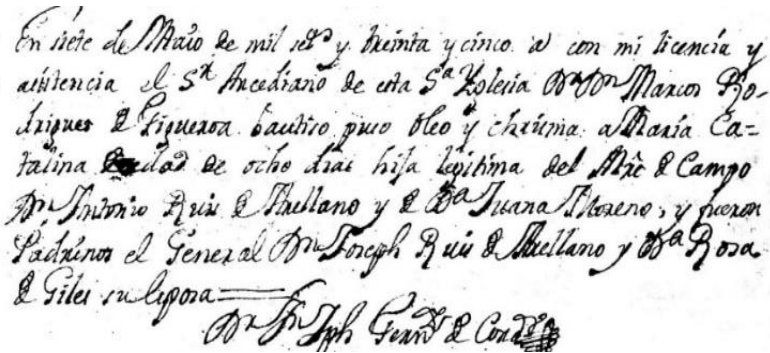 En siete de Maio de mil setº y treinta y cinco a con mi licencia y
asistencia el Sr Arcediano de esta Sª Yglesia Dr Dn Marcos Ro-
driguez de Figueroa bautiso puso oleo y chrisma a Maria Ca=
talina edad de ocho dias hija legitima del Mre de Campo
Dn Antonio Ruis de Arellano y de Dª Juana Moreno, y fueron
Padrinos el General Dn Joseph Ruis de Arellano y Dª Rosa
de Giles su esposa
Dn Jph Fernz de